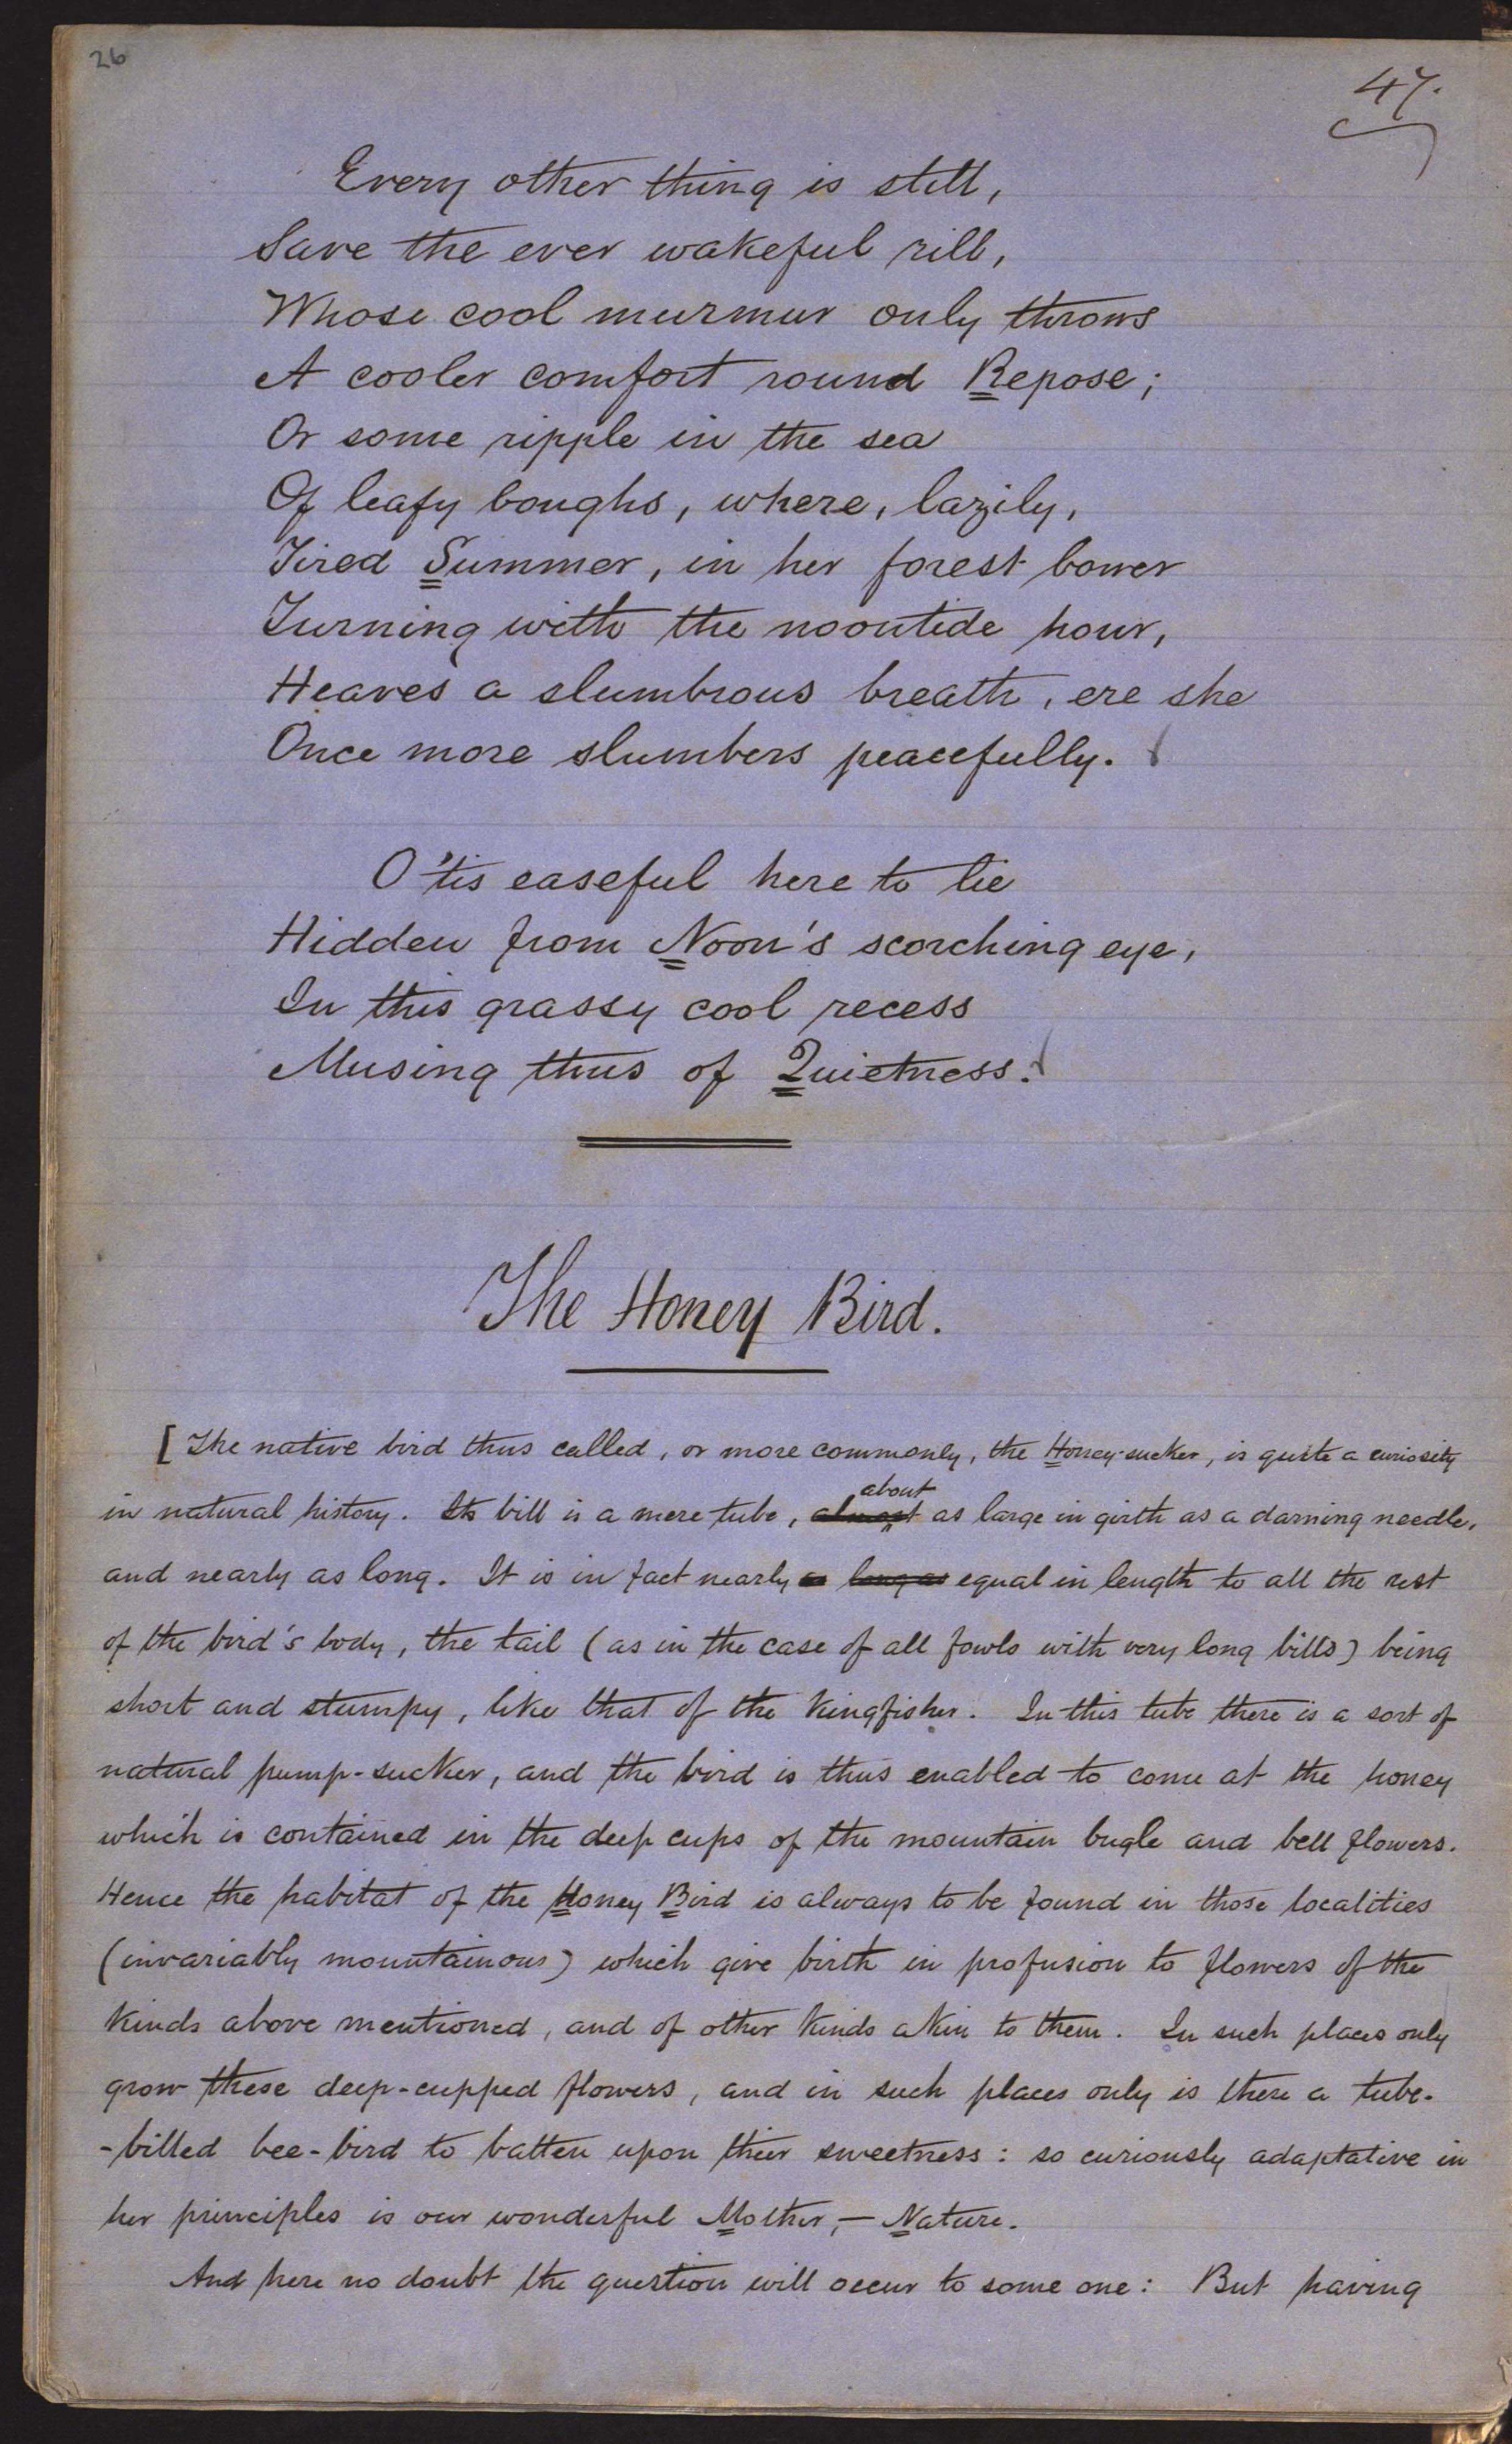 26
47.
Every other thing is still,
Save the ever wakeful rill,
Whose cool murmur only throws
A cooler comfort round Repose;
Or some ripple in the sea
Of leafy boughs, where, lazily,
Tired Summer, in her forest bower
Turning with the noontide hour,
Heaves a slumbrous breath, ere she
Once more slumbers peacefully.
O 'tis easeful here to lie
Hidden from Noon's scorching eye,
In this grassy cool recess
Musing thus of Quietness.
The Honey Bird.
[The native bird thus called, or more commonly, the Honey-sucker, is quite a curiosity
about
in natural history. Its bill is a mere tube, almost as large in girth as a darning needle,
and nearly as long. It is in fact nearly as long as equal in length to all the rest
of the bird's body, the tail (as in the case of all fowls with very long bills) being
short and stumpy, like that of the Kingfisher. In this tube there is a sort of
natural pump-sucker, and the bird is thus enabled to come at the honey
which is contained in the deep cups of the mountain bugle and bell flowers.
Hence the habitat of the Honey Bird is always to be found in those localities
(invariably mountainous) which give birth in profusion to flowers of the
kinds above mentioned, and of other kinds akin to them. In such places only
grow these deep-cupped flowers, and in such places only is there a tube-
-billed bee-bird to batten upon their sweetness: so curiously adaptative in
her principles is our wonderful Mother,—Nature.
And here no doubt the question will occur to some one: But having